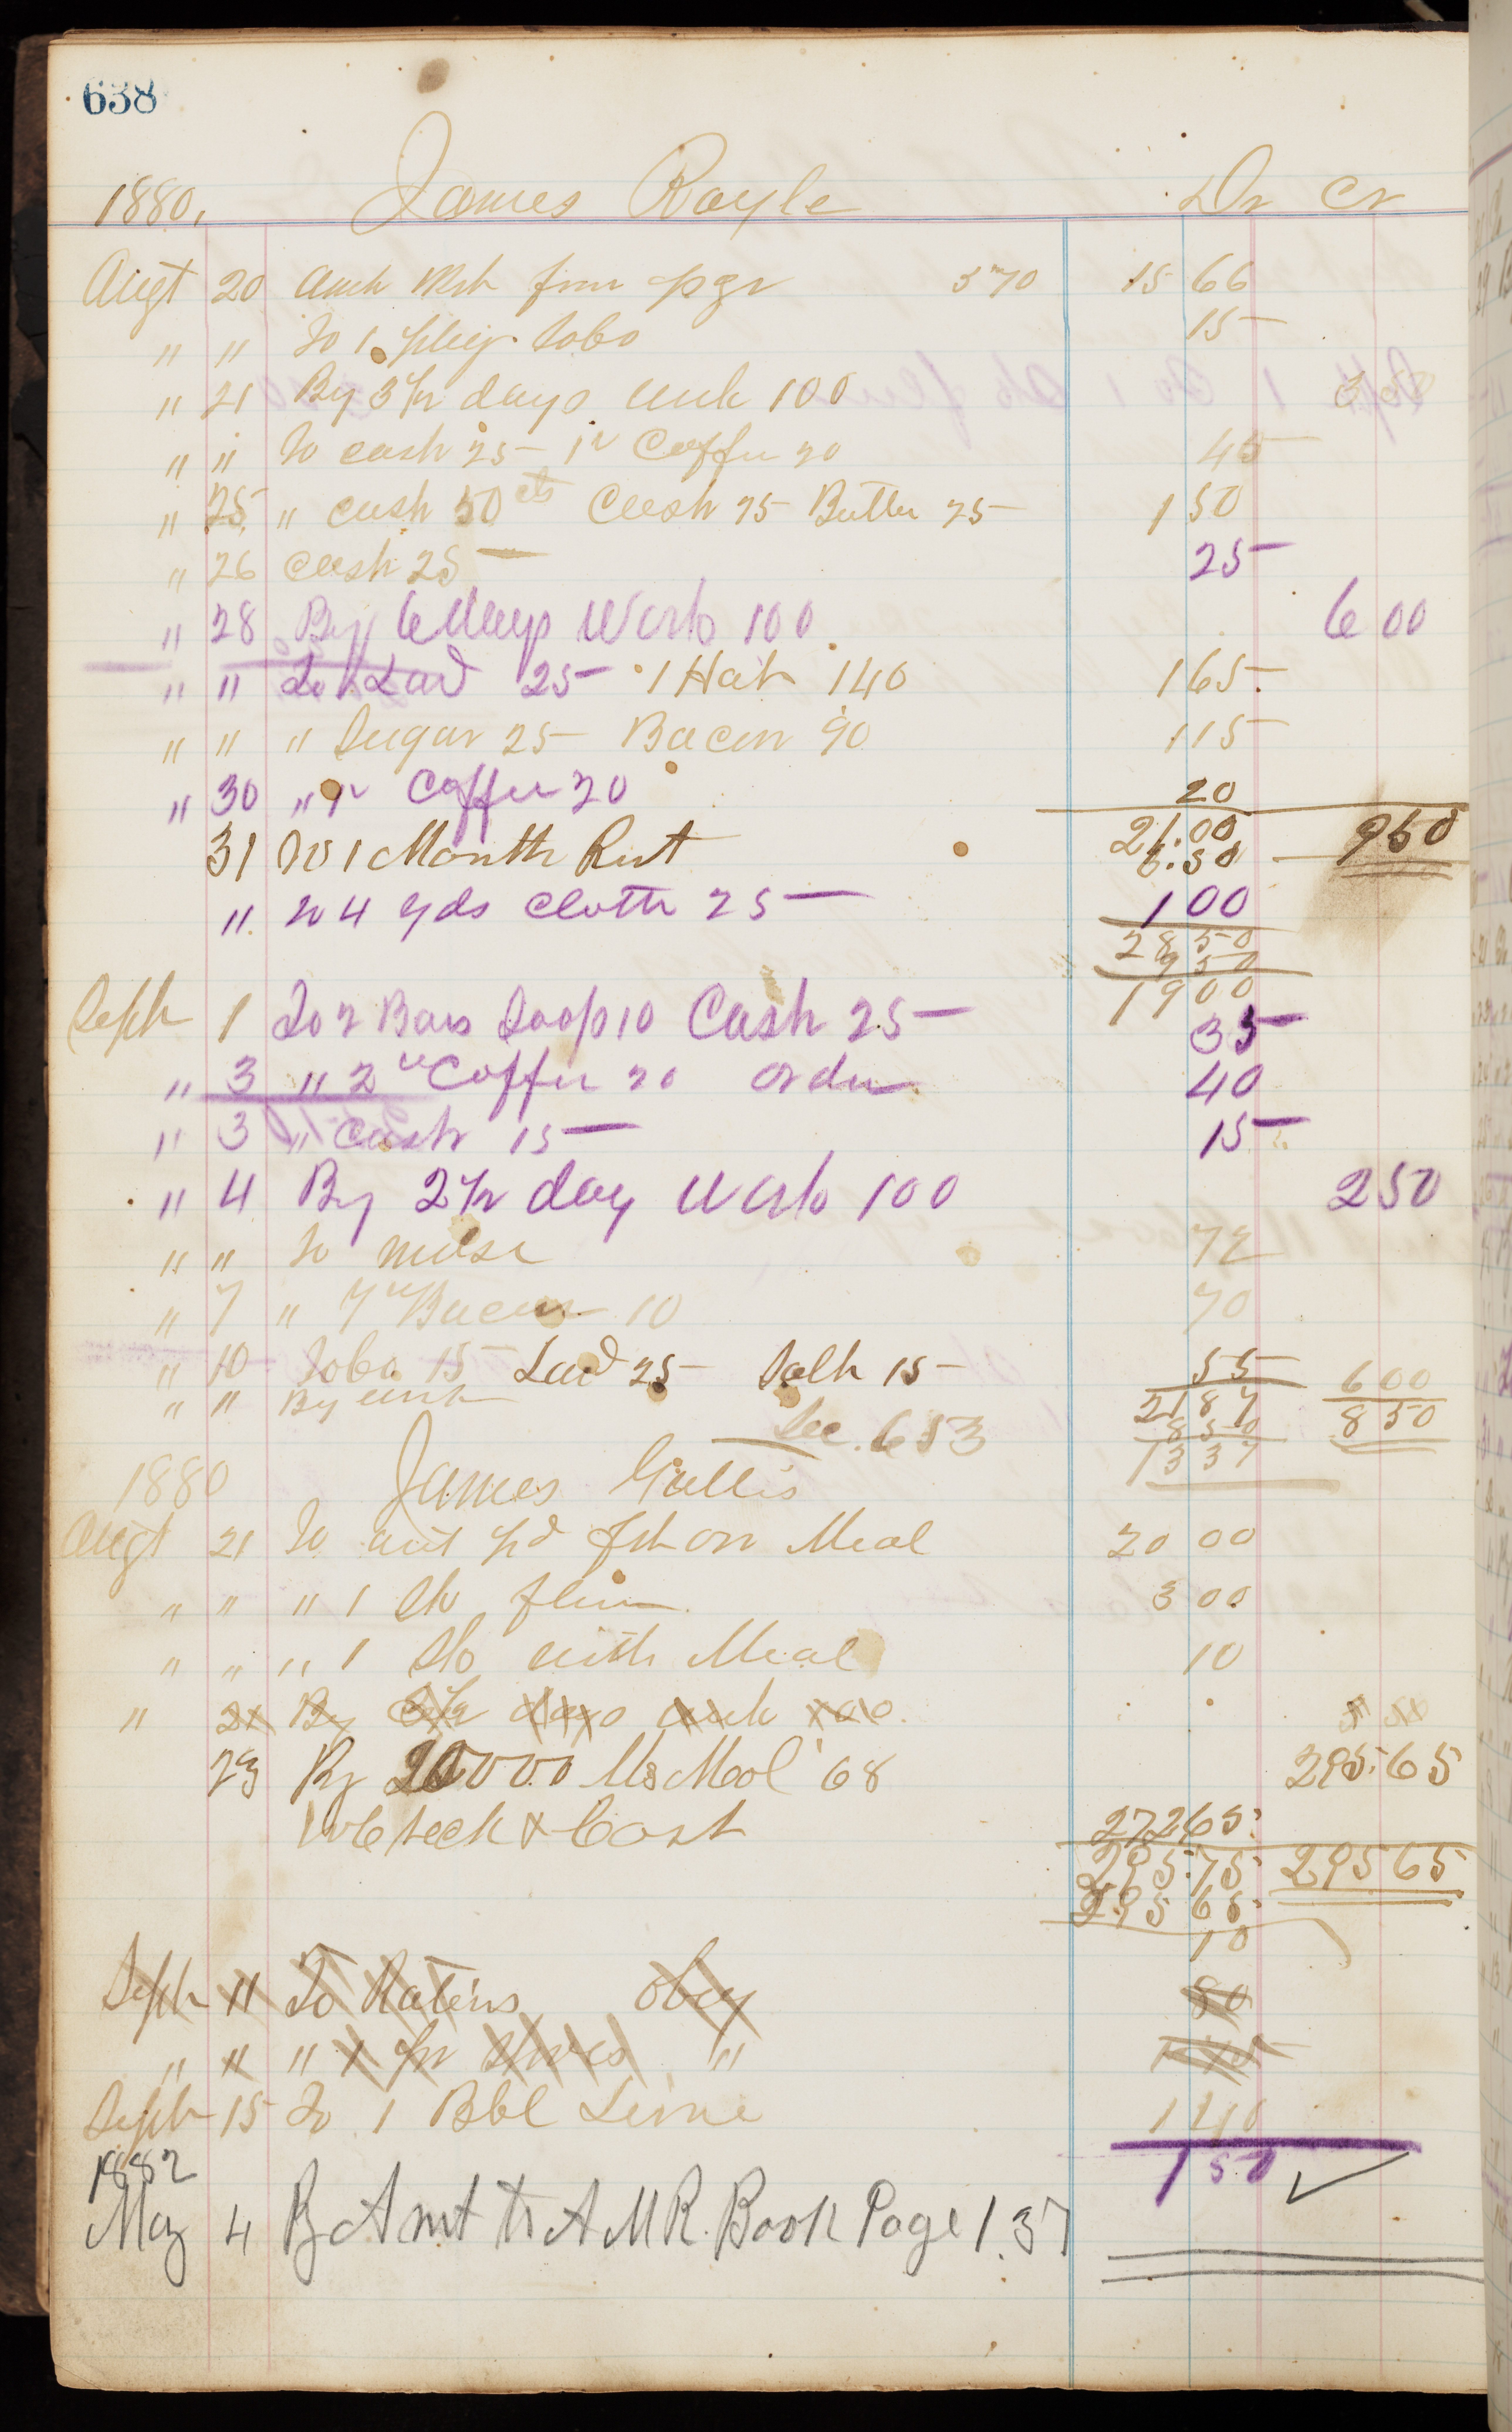 638
1880. James Royle Dr Cr
Augt 20 Amt frm pge 570 15 66
" " To 1 plug Tobo 15
" 21 By 3 1/2 days work 100 3 50
" " To cash 25 1 Coffee 20 45
" 25 " cash 50 cts Cash 75 Butter 25 1 50
" 26 Cash 25 25
" 28 By 6 days Work 100 6 00
" " To Lard 25 1 Hat 140 1 65
" " " Sugar 25 Bacon 90 1 15
" 30 " Coffee 20 20
21.00 950
31 To 1 Month Rent 6.50
" To 4 yds Cloth 25 1 00
28 50
9 50
19 00
Sept 1 To 2 Bars Soap 10 Cash 25 35
" 3 " 2 Coffee 20 order 40
" 3 " Cash 15 15
" 4 By 2 1/2 day Work 100 2 50
" " To mdse 72
" 7 " 7 Bacon 10 70
" 10 Tobo 15 Lard 25 Salt 15 55
" " By work 6 00
21 87 8 50
See. 653 8 50
13 37
1880 James Gullis
Augt 21 To amt pd frt on Meal 20 00
" " " 1 Sk flour 3 00
" " " 1 Sk with Meal 10
" 21 By 3 1/2 days work 100 3 50
23 By 20000 Meal 68 295.65
To Check & Cost 272 65
295.75 295 65
295 65
10
Sept 11 To Rations Obey 80
" " " 1 pr Shoes "
Sept 15 To 1 Bbl Lime 1 40
1 50
1882
May 4 By Amt to A M R. Book Page 137